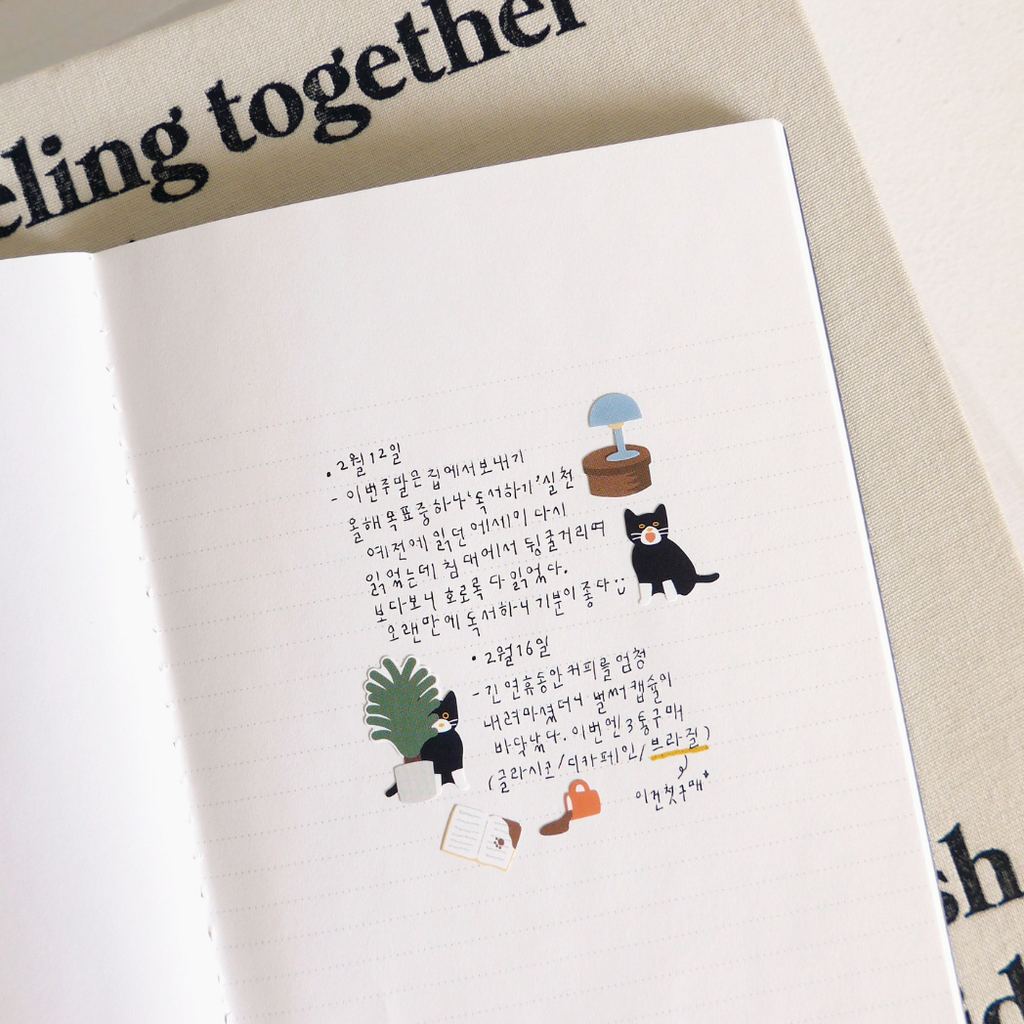 eling together
• 2월 12일
- 이번주말은 집에서 보내기
올해 목표중하나 '독서하기' 실천
예전에 읽던 에세이 다시
읽었는데 침대에서 뒹굴거리며
보다보니 호로록 다 읽었다.
오랜만에 독서하니 기분이 좋다 :)
• 2월 16일
- 긴 연휴동안 커피를 엄청
내려마셨더니 벌써 캡슐이
바닥났다. 이번엔 3통구매
(글라시코/디카페인/브라질)
이건 첫구매
sh
id